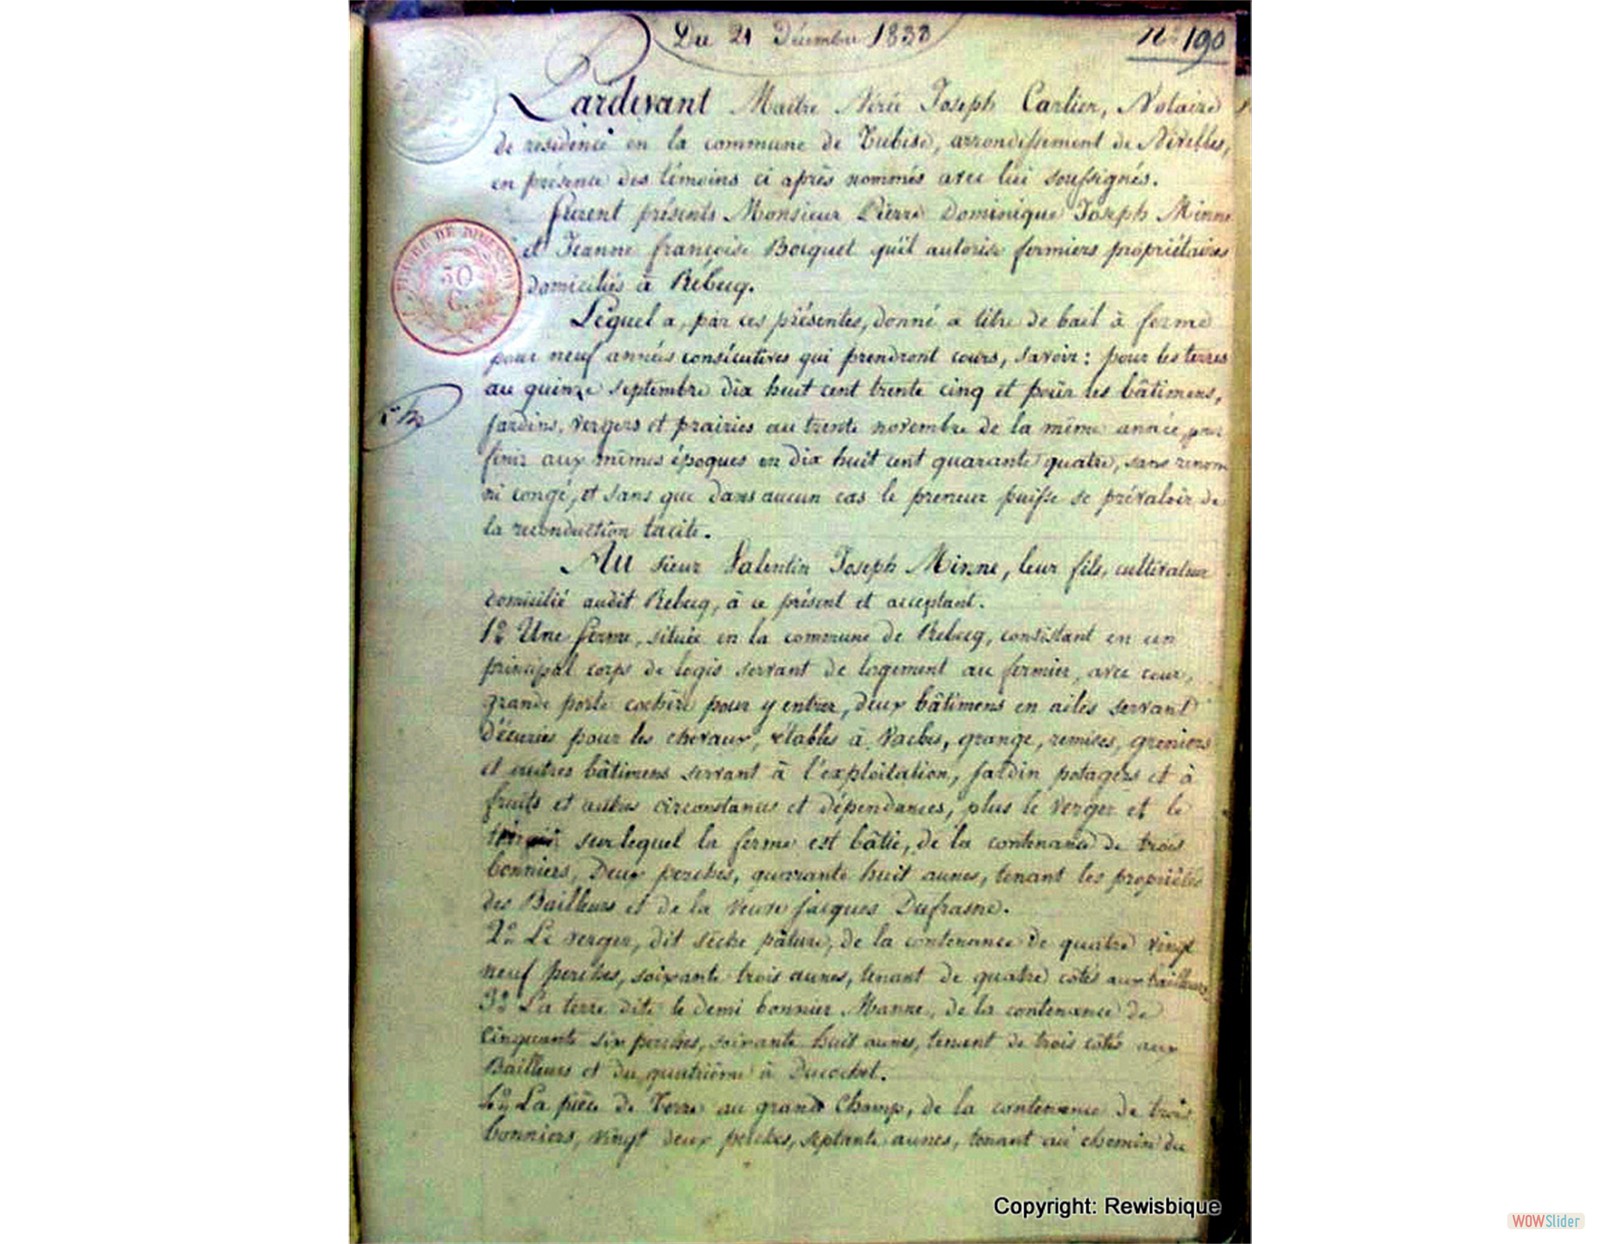 Du 21 Décembre 1833
N° 190
Pardevant Maître Nérée Joseph Carlier, Notaire
de résidence en la commune de Tubise, arrondissement de Nivelles,
en presence des témoins ci après nommés avec lui soussignés.
furent présents Monsieur Pierre Dominique Joseph Minne
et Jeanne françoise Bocquet qu'il autorise fermiers propriétaires
domiciliés à Rebecq.
Lequel a, par ces présentes, donné à titre de bail à ferme
pour neuf années consécutives qui prendront cours, savoir : pour les terres
au quinze septembre dix huit cent trente cinq et pour les bâtimens,
jardins, vergers et prairies au trente novembre de la même année, pour
finir aux mêmes époques en dix huit cent quarante quatre, sans renom
ni congé, et sans que dans aucun cas le preneur puisse se prévaloir de
la reconduction tacite.
Au sieur Valentin Joseph Minne, leur fils, cultivateur
domicilié audit Rebecq, à ce présent et acceptant.
1° Une ferme, située en la commune de Rebecq, consistant en un
principal corps de logis servant de logement au fermier, avec cour,
grande porte cochère pour y entrer, deux bâtimens en ailes servant
d'écuries pour les chevaux, étables à vaches, grange, remises, greniers
et autres bâtimens servant à l'exploitation, jardin potagers et à
fruits et autres circonstances et dépendances, plus le verger et le
sur lequel la ferme est bâtie, de la contenance de trois
bonniers, Deux perches, quarante huit aunes, tenant les propriétés
des Bailleurs et de la veuve jacques Dufrasne.
2° Le verger, dit sèche pâture, de la contenance de quatre vingt
neuf perches, soixante trois aunes, tenant de quatre côtés aux bailleurs
3° La terre dite le demi bonnier Manne, de la contenance de
cinquante six perches, soixante huit aunes, tenant de trois côtés aux
Bailleurs et du quatrième à Ducochet.
4° La pièce de Terre au grand Champ, de la contenance de trois
bonniers, vingt deux perches, septante aunes, tenant au chemin du
TIMBRE DE DIMENSION
50
C.
Copyright: Rewisbique
WOWSlider